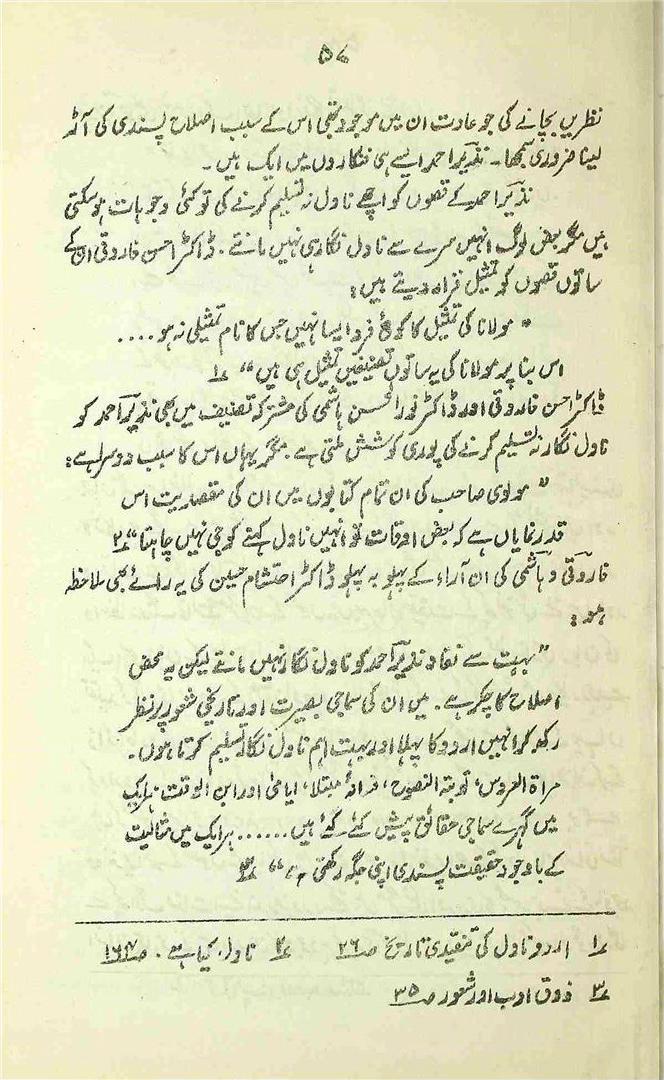 ۵۷
نظریں بچانے کی جو عادت ان میں موجود تھی اس کے سبب اصلاح پسندی کی آڑ
لینا ضروری سمجھا۔ نذیر احمد ایسے ہی فنکاروں میں ایک ہیں۔
نذیر احمد کے قصوں کو اچھے ناول نہ تسلیم کرنے کی تو کئی وجوہات ہو سکتی
ہیں مگر بعض لوگ انہیں سرے سے ناول نگار ہی نہیں مانتے۔ ڈاکٹر احسن فاروقی ان کے
ساتوں قصوں کو تمثیل قرار دیتے ہیں:
"مولانا کی تمثیل کا کوئی فرد ایسا نہیں جس کا نام تمثیلی نہ ہو ....
اس بنا پر مولانا کی یہ ساتوں تصنیفیں تمثیل ہی ہیں" ۱؎
ڈاکٹر احسن فاروقی اور ڈاکٹر نورالحسن ہاشمی کی مشترکہ تصنیف میں بھی نذیر احمد کو
ناول نگار نہ تسلیم کرنے کی پوری کوشش ملتی ہے۔ مگر یہاں اس کا سبب دوسرا ہے:
"مولوی صاحب کی ان تمام کتابوں میں ان کی مقصدیت اس
قدر نمایاں ہے کہ بعض اوقات تو انہیں ناول کہنے کو جی نہیں چاہتا" ۲؎
فاروقی و ہاشمی کی ان آراء کے پہلو بہ پہلو ڈاکٹر احتشام حسین کی یہ رائے بھی ملاحظہ
ہو:
"بہت سے نقاد نذیر احمد کو ناول نگار نہیں مانتے لیکن یہ محض
اصلاح کا چکر ہے۔ میں ان کی سماجی بصیرت اور تاریخی شعور پر نظر
رکھ کر انہیں اردو کا پہلا اور بہت اہم ناول نگار تسلیم کرتا ہوں۔
مراۃ العروس، توبتہ النصوح، فسانۂ مبتلا، ایامیٰ اور ابن الوقت ہر ایک
میں گہرے سماجی حقائق پیش کئے گئے ہیں ...... ہر ایک میں مثالیت
کے باوجود حقیقت پسندی اپنی جگہ رکھتی ہے" ۳؎
۱؎ اردو ناول کی تنقیدی تاریخ ص ۲۶ ۲؎ ناول کیا ہے۔ ص ۱۶۷
۳؎ ذوق ادب اور شعور ص ۳۵